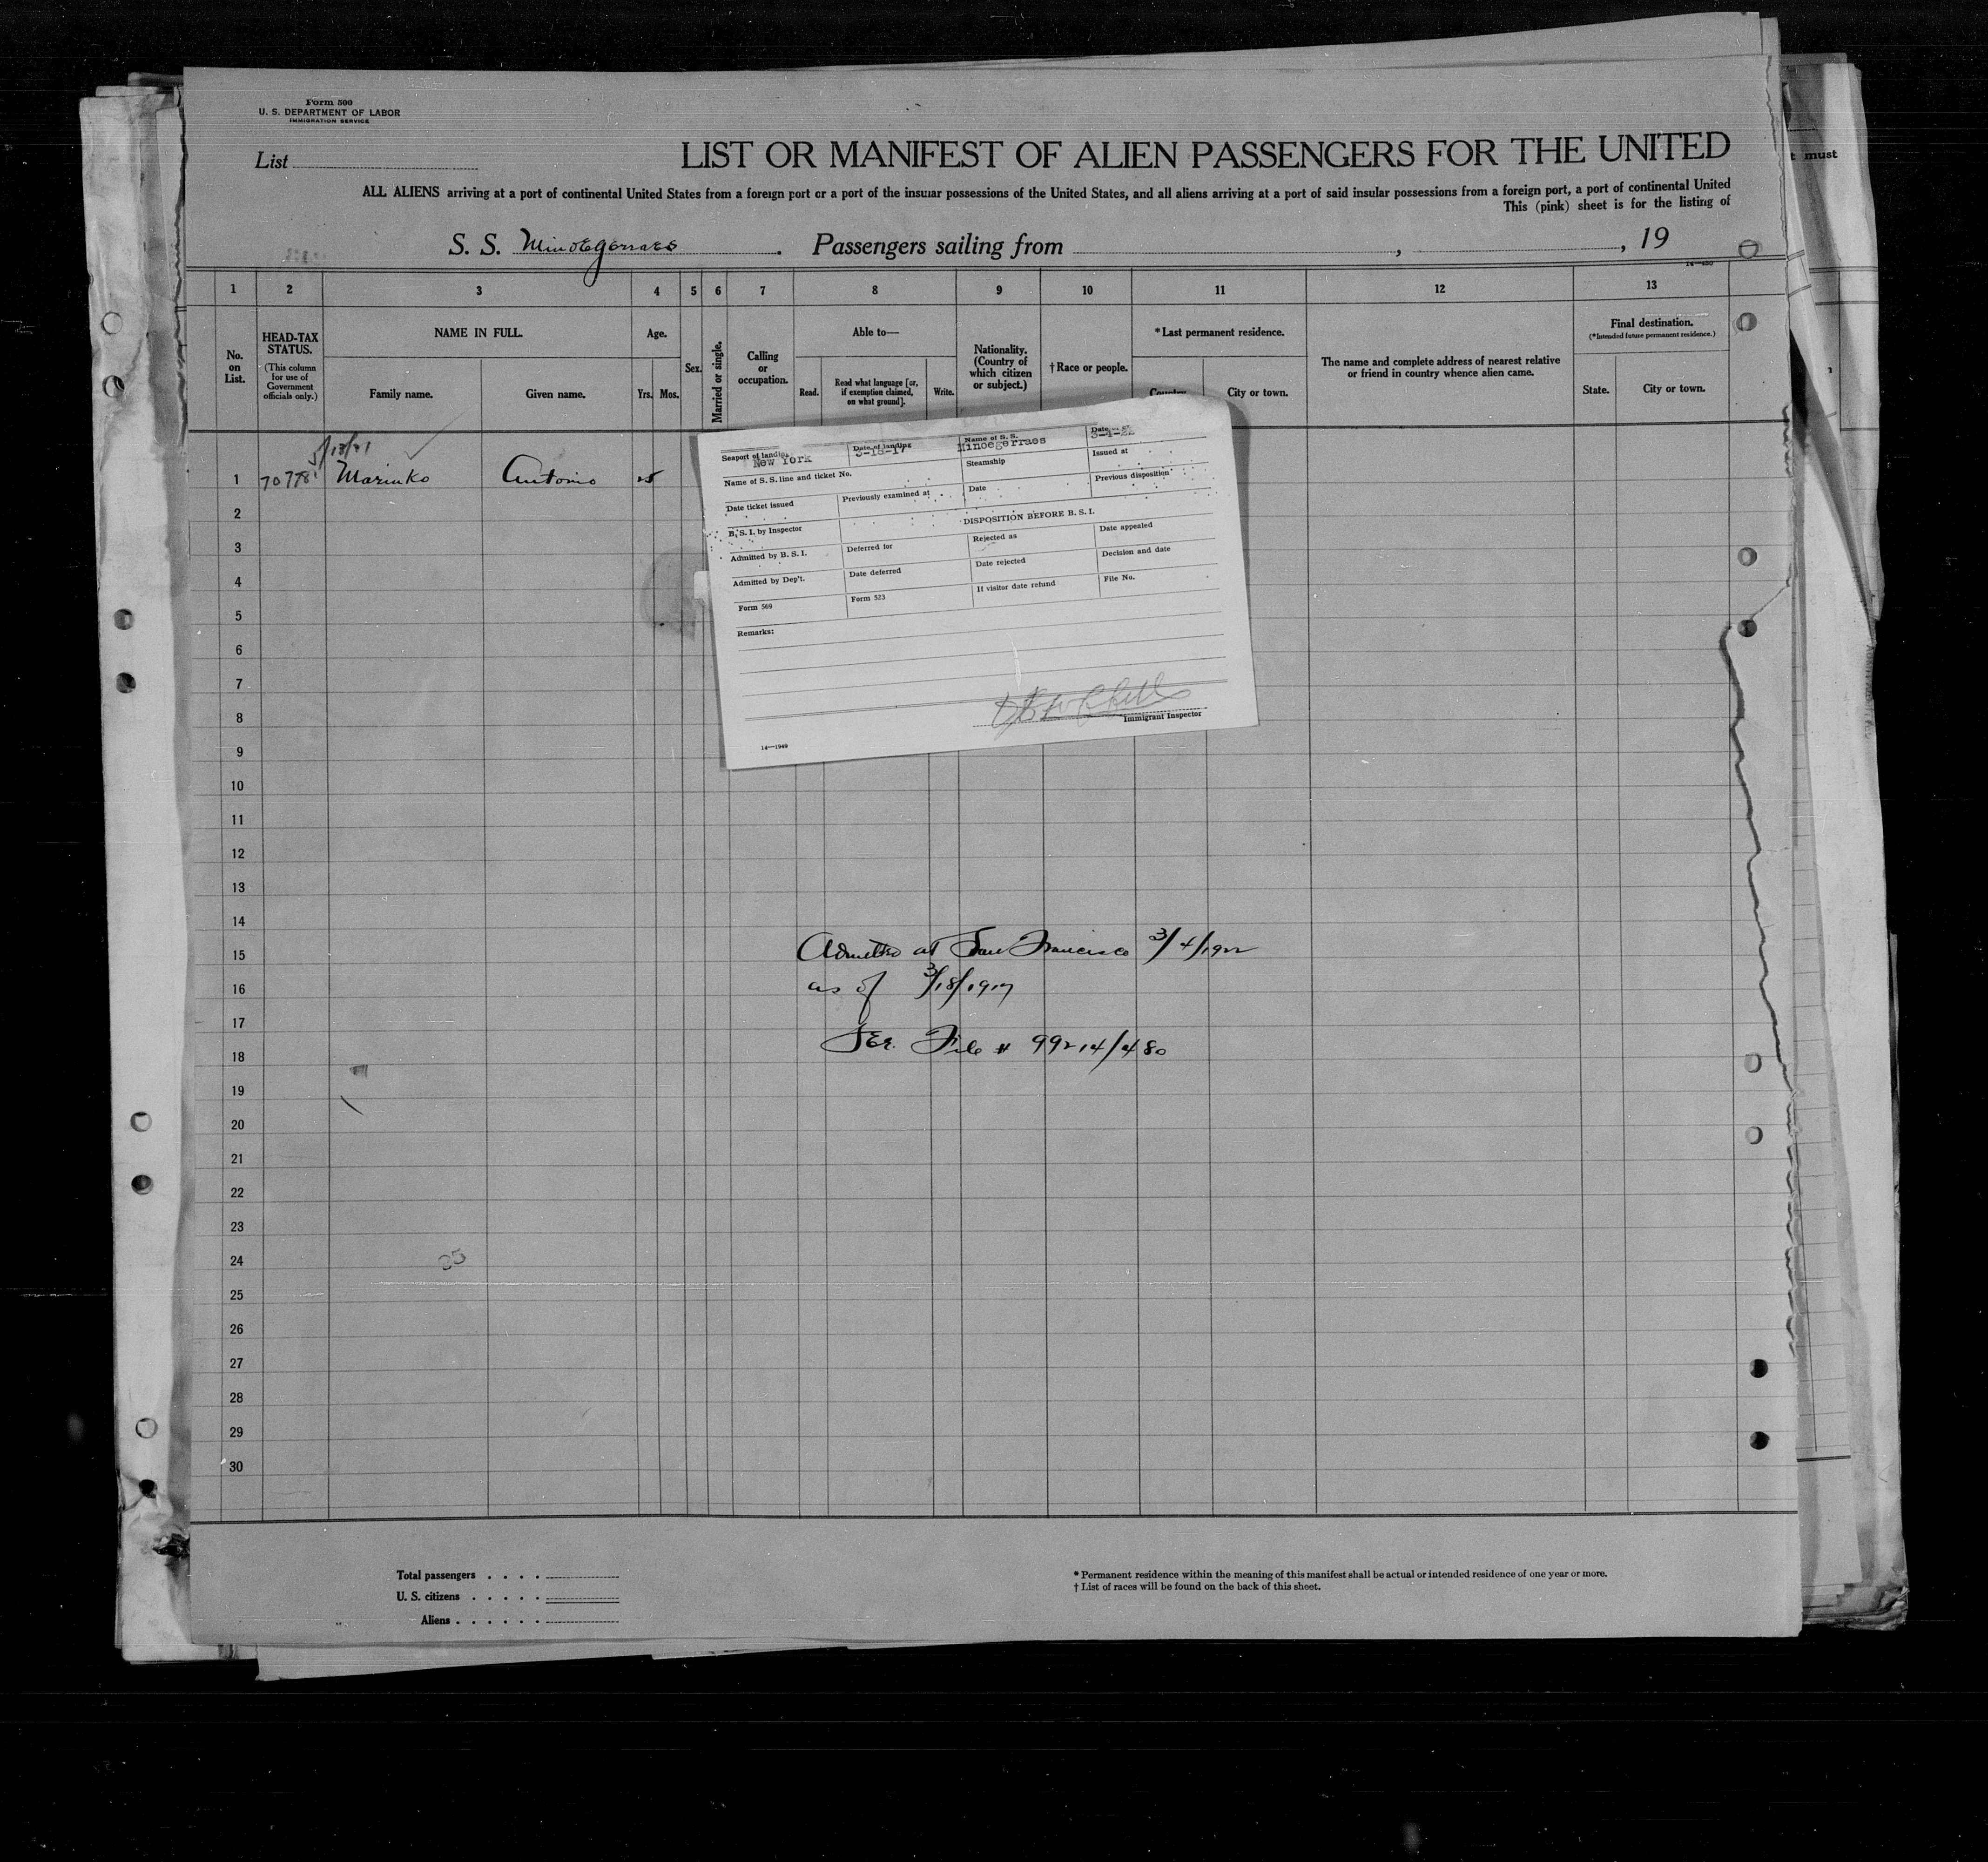 Form 500
U. S. DEPARTMENT OF LABOR
IMMIGRATION SERVICE
List
LIST OR MANIFEST OF ALIEN PASSENGERS FOR THE UNITED
ALL ALIENS arriving at a port of continental United States from a foreign port or a port of the insular possessions of the United States, and all aliens arriving at a port of said insular possessions from a foreign port, a port of continental United
This (pink) sheet is for the listing of
t must
S. S. Minoegerraes. Passengers sailing from , , 19
14—480
1 2 3 4 5 6 7 8 9 10 11 12 13
No. on List.
HEAD-TAX STATUS.
(This column for use of Government officials only.)
NAME IN FULL.
Family name. Given name.
Age.
Yrs. Mos.
Sex.
Married or single.
Calling or occupation.
Able to—
Read. Read what language [or, if exemption claimed, on what ground]. Write.
Nationality. (Country of which citizen or subject.)
† Race or people.
* Last permanent residence.
Country. City or town.
The name and complete address of nearest relative or friend in country whence alien came.
Final destination.
(*Intended future permanent residence.)
State. City or town.
1 Marinko Antonio 25
Seaport of landing New York
Date of landing 3-18-17
Name of S. S. Minoegerraes
Date 3-4-22
Name of S. S. line and ticket No.
Steamship
Issued at
Date ticket issued
Previously examined at
Date
Previous disposition
B. S. I. by Inspector
DISPOSITION BEFORE B. S. I.
Admitted by B. S. I.
Deferred for
Rejected as
Date appealed
Admitted by Dep't.
Date deferred
Date rejected
Decision and date
Form 569
Form 523
If visitor date refund
File No.
Remarks:
Immigrant Inspector
14—1949
2
3
4
5
6
7
8
9
10
11
12
13
14
15 Admitted at San Francisco 3/4/1922
16 as of 3/18/1917
17
18 File # 99214/480
19
20
21
22
23
24
25
26
27
28
29
30
Total passengers . . . .
U. S. citizens . . . . .
Aliens . . . . . .
* Permanent residence within the meaning of this manifest shall be actual or intended residence of one year or more.
† List of races will be found on the back of this sheet.